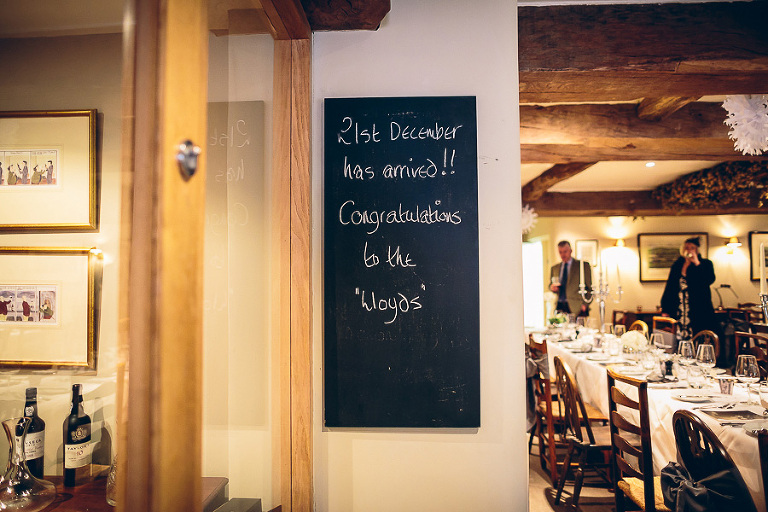 21st December
has arrived!!
Congratulations
to the
"Lloyds"